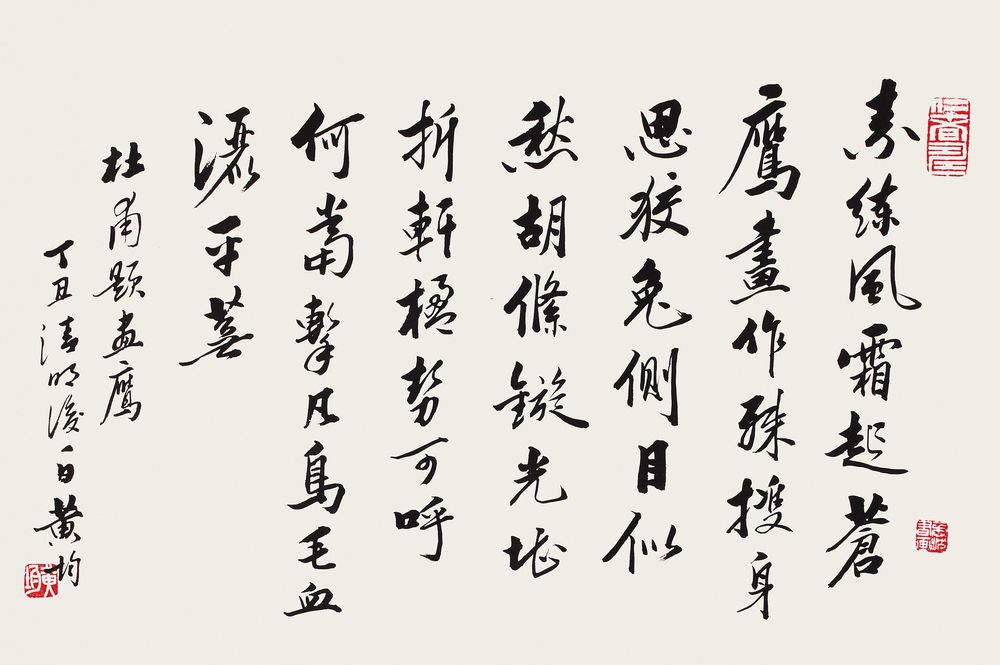 素練風霜起蒼
鷹畫作殊搜身
思狡兔側目似
愁胡絛鏇光堪
折軒楹勢可呼
何當擊凡鳥毛血
灑平蕪
杜甫題畫鷹
丁丑清明後一日黃均
黃均